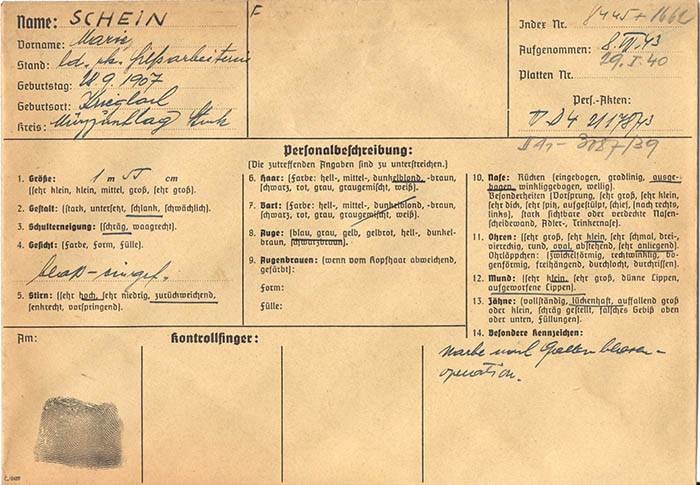 Name: SCHEIN
Vorname: Marie
Stand: led. rk. Hilfsarbeiterin
Geburtstag: 28.9.1907
Geburtsort: Krieglach
Kreis: Mürzzuschlag Stmk
F
Index Nr. 8445+1662
Aufgenommen: 8.VI.43
29.I.40
Platten Nr.
Pers.-Akten:
IV D4 21178/43
II A1- 3087/39
Personalbeschreibung:
(Die zutreffenden Angaben sind zu unterstreichen.)
1. Größe: 1 m 55 cm
(sehr klein, klein, mittel, groß, sehr groß).
2. Gestalt: (stark, untersetzt, schlank, schwächlich).
3. Schulterneigung: (schräg, waagrecht).
4. Gesicht: (Farbe, Form, Fülle).
blaß-eingef.
5. Stirn: (sehr hoch, sehr niedrig, zurückweichend,
senkrecht, vorspringend).
6. Haar: (Farbe: hell-, mittel-, dunkelblond, -braun,
schwarz, rot, grau, graugemischt, weiß).
7. Bart: (Farbe: hell-, mittel-, dunkelblond, -braun,
schwarz, rot, grau, graugemischt, weiß).
8. Auge: (blau, grau, gelb, gelbrot, hell-, dunkel-
braun, schwarzbraun).
9. Augenbrauen: (wenn vom Kopfhaar abweichend,
gefärbt):
Form:
Fülle:
10. Nase: Rücken (eingebogen, gradlinig, ausge-
bogen, winkliggebogen, wellig).
Besonderheiten (Vorsprung, sehr groß, sehr klein,
sehr dick, sehr spitz, aufgestülpt, schief, [nach rechts,
links], stark sichtbare oder verdeckte Nasen-
scheidewand, Adler-, Trinkernase).
11. Ohren: (sehr groß, sehr klein, sehr schmal, drei-,
viereckig, rund, oval, abstehend, sehr anliegend).
Ohrläppchen: (zwickelförmig, rechtwinklig, bo-
genförmig, freihängend, durchlocht, durchrissen).
12. Mund: (sehr klein, sehr groß, dünne Lippen,
aufgeworfene Lippen).
13. Zähne: (vollständig, lückenhaft, auffallend groß
oder klein, schräg gestellt, falsches Gebiß oben
oder unten, Füllungen).
14. Besondere Kennzeichen:
Narbe nach Gallenblasen-
operation.
Am:
Kontrollfinger: